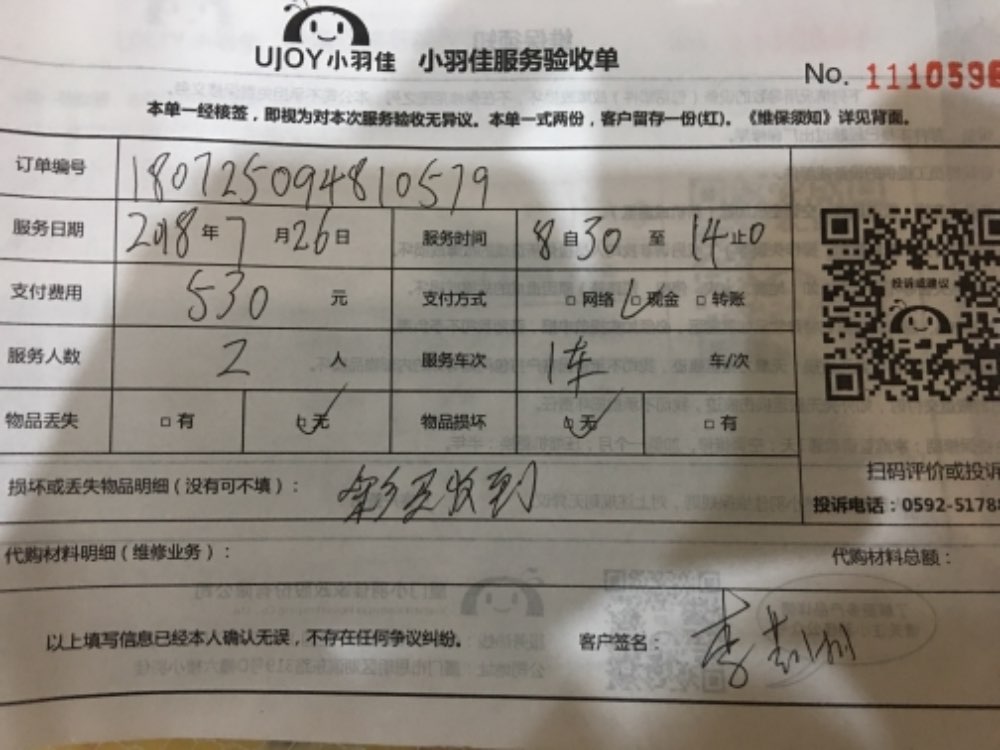 UJOY小羽佳 小羽佳服务验收单
No. 1110596
本单一经核签，即视为对本次服务验收无异议。本单一式两份，客户留存一份(红)。《维保须知》详见背面。
订单编号 180725094810579
服务日期 2018年7月26日 服务时间 8自30至14止0
支付费用 530元 支付方式 □网络 □现金 □转账
服务人数 2人 服务车次 1车 车/次
投诉或建议
物品丢失 □有 □无 物品损坏 □无 □有
扫码评价或投诉
损坏或丢失物品明细（没有可不填）： 收到
投诉电话：0592-5178
代购材料明细（维修业务）： 代购材料总额：
以上填写信息已经本人确认无误，不存在任何争议纠纷。 客户签名：李